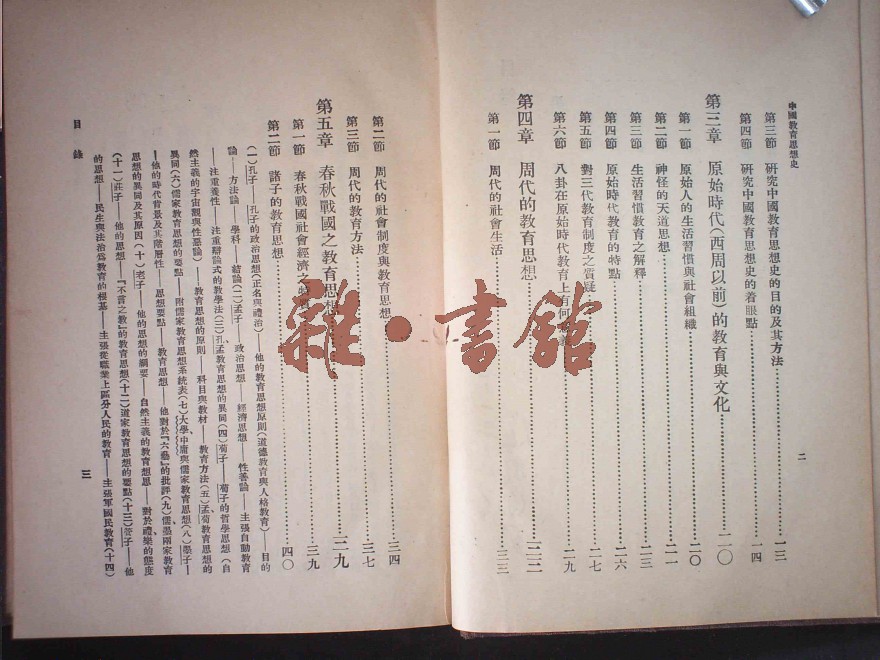 中國教育思想史
第三節 研究中國教育思想史的目的及其方法 一三
第四節 研究中國教育思想史的着眼點 一四
第三章 原始時代(西周以前)的教育與文化 二〇
第一節 原始人的生活習慣與社會組織 二〇
第二節 神怪的天道思想 二一
第三節 生活習慣教育之解釋 二三
第四節 原始時代教育的特點 二六
第五節 對三代教育制度之質疑 二七
第六節 八卦在原始時代教育上有何 二九
第四章 周代的教育思想 三三
第一節 周代的社會生活 三三
二
第二節 周代的社會制度與教育思想 三四
第三節 周代的教育方法 三七
第五章 春秋戰國之教育思想 三九
第一節 春秋戰國社會經濟之特 三九
第二節 諸子的教育思想 四〇
(一)孔子——孔子的政治思想(正名與禮治)——他的教育思想原則(道德教育與人格教育)——目的
論——方法論——學科——結論(二)孟子——政治思想——經濟思想——性善論——主張自動教育
——注重養性——注重辯論式的教學法(三)孔孟教育思想的異同(四)荀子——荀子的哲學思想(自
然主義的宇宙觀與性惡論)——教育思想的原則——科目與教材——教育方法(五)孟荀教育思想的
異同(六)儒家教育思想的要點——附儒家教育思想系統表(七)大學、中庸與儒家教育思想(八)墨子——
——他的時代背景及其階層性——思想要點——教育思想——他對於『六藝』的批評(九)儒墨兩家教育
思想的異同及其原因(十)老子——他的思想的綱要——自然主義的教育思想——對於禮樂的態度
(十一)莊子——他的思想——『不言之教』的教育思想(十二)道家教育思想的要點(十三)管子——他
的思想——民生與法治爲教育的根基——主張從職業上區分人民的教育——主張軍國民教育(十四)
目錄
三
雜·書館